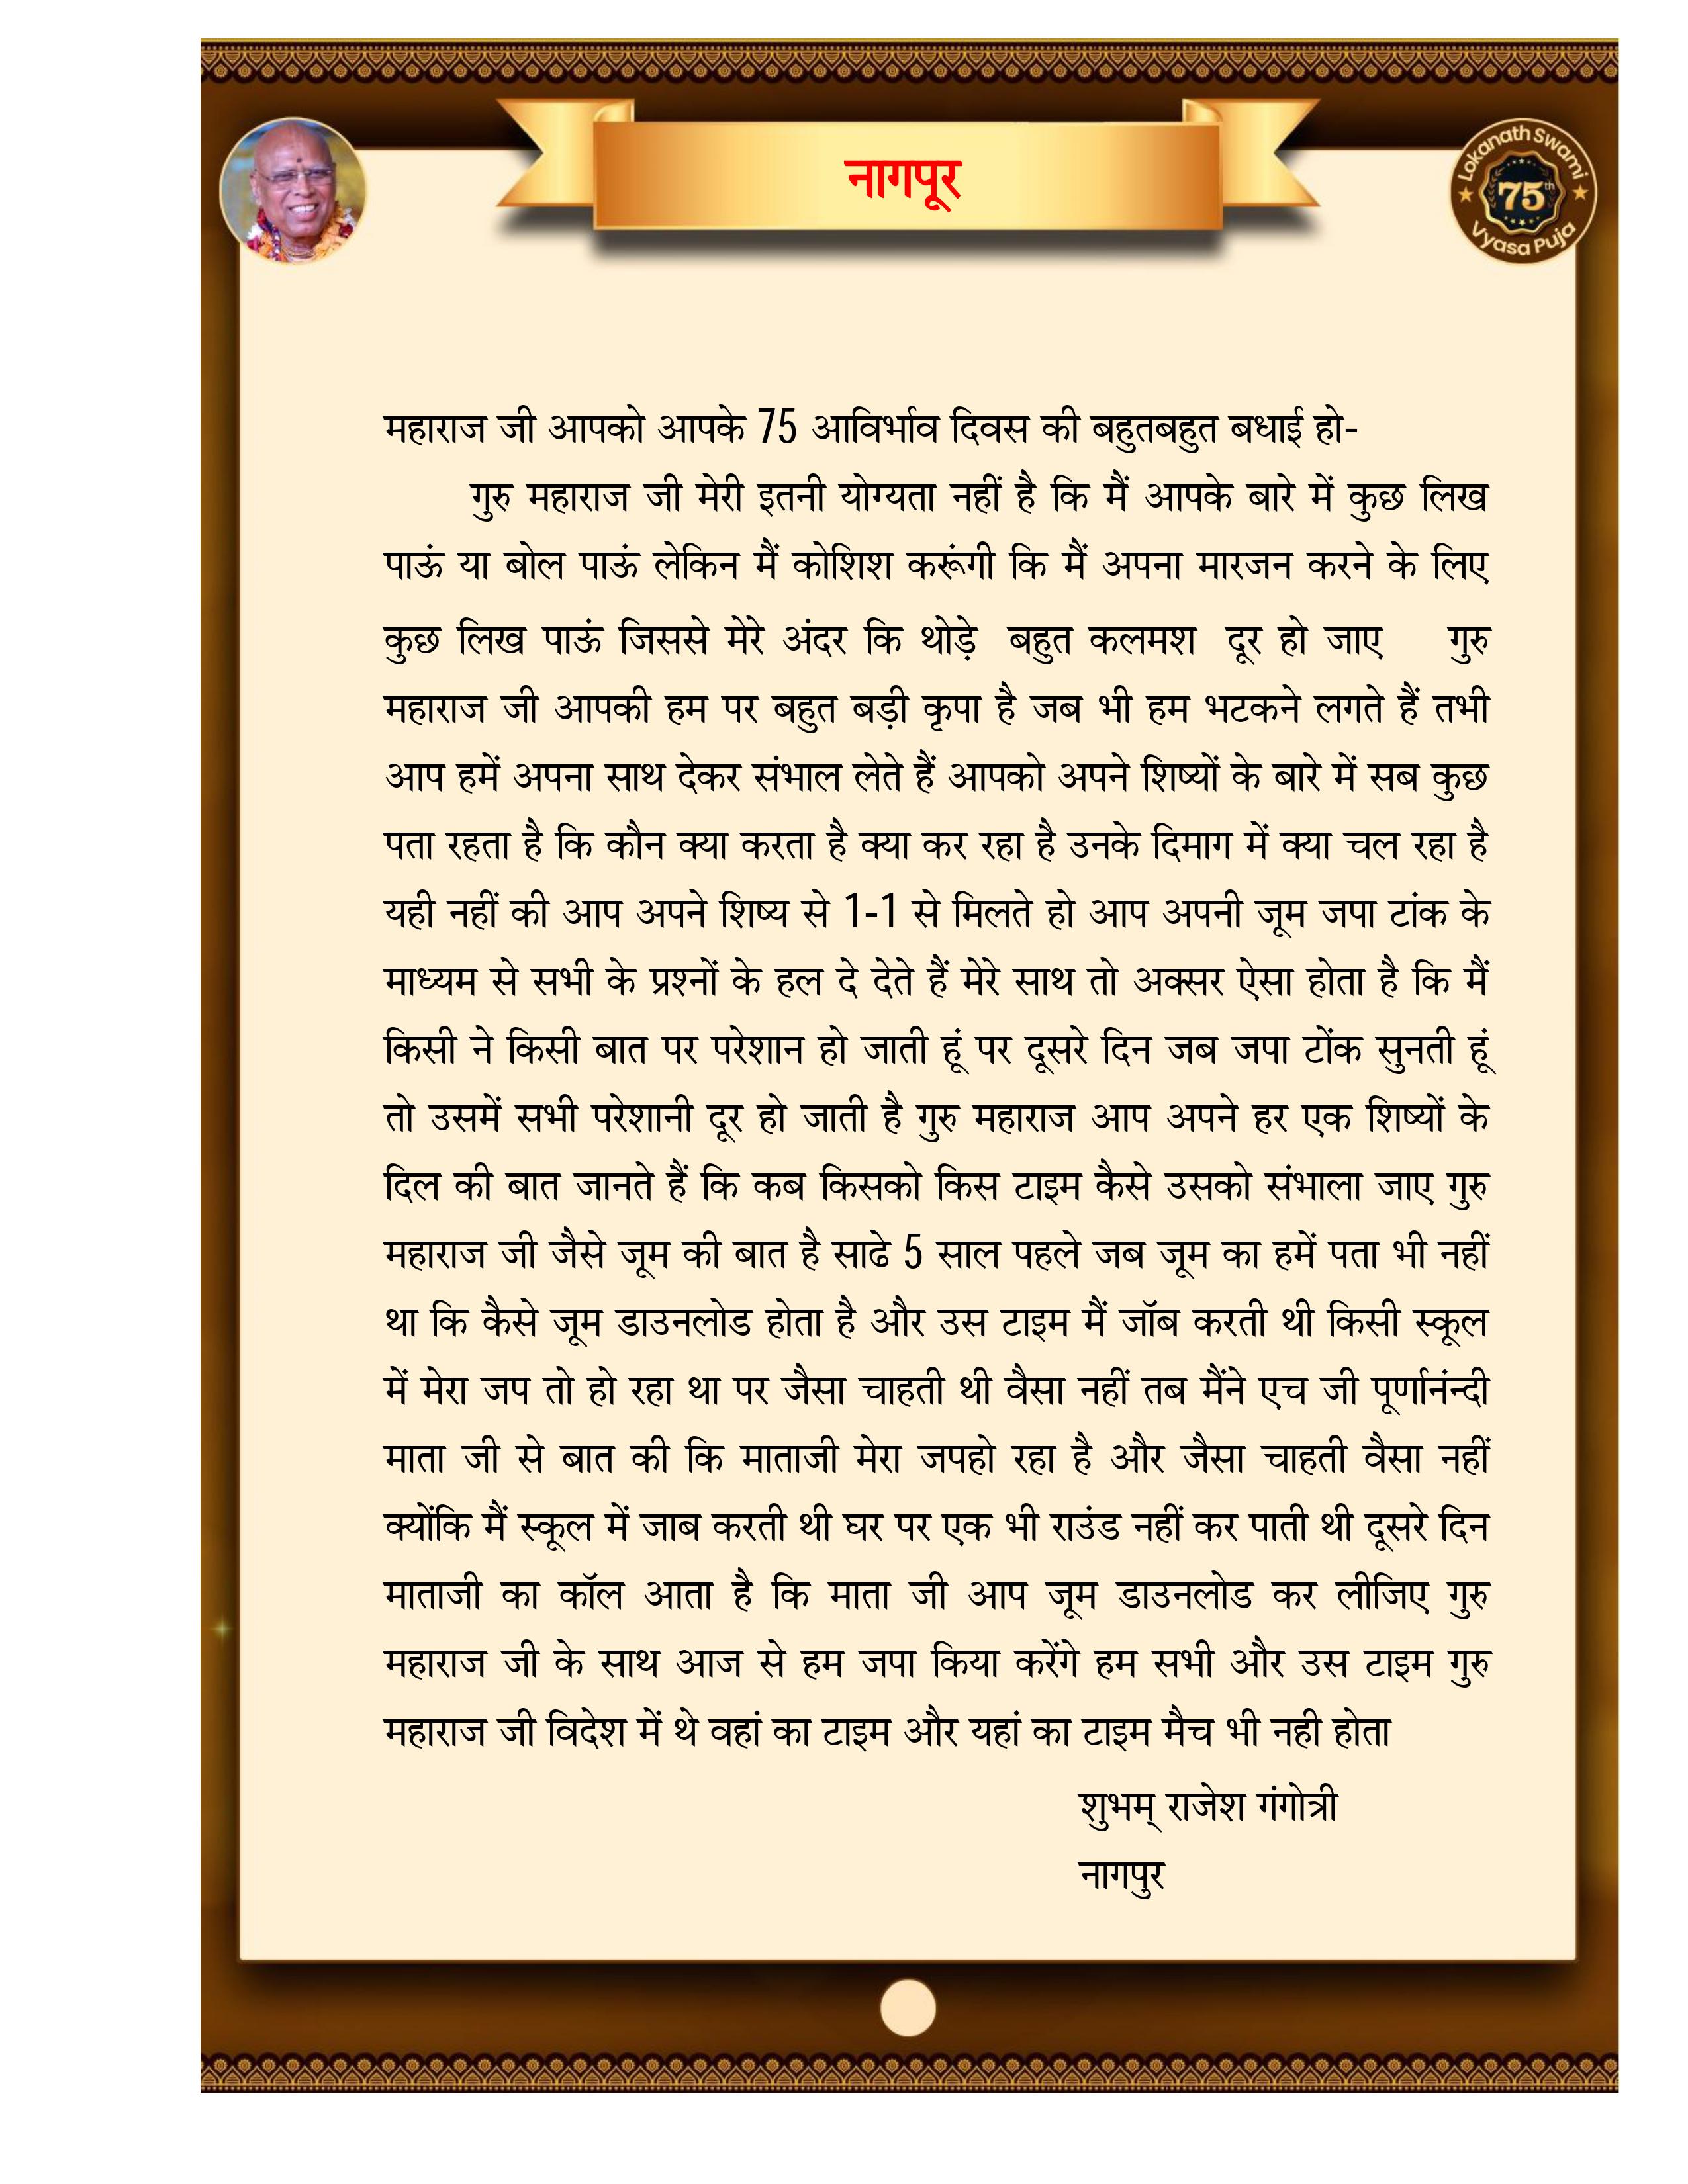 नागपूर
Lokanath Swami
75th
Vyasa Puja
महाराज जी आपको आपके 75 आविर्भाव दिवस की बहुतबहुत बधाई हो-
गुरु महाराज जी मेरी इतनी योग्यता नहीं है कि मैं आपके बारे में कुछ लिख
पाऊं या बोल पाऊं लेकिन मैं कोशिश करूंगी कि मैं अपना मारजन करने के लिए
कुछ लिख पाऊं जिससे मेरे अंदर कि थोड़े बहुत कलमश दूर हो जाए गुरु
महाराज जी आपकी हम पर बहुत बड़ी कृपा है जब भी हम भटकने लगते हैं तभी
आप हमें अपना साथ देकर संभाल लेते हैं आपको अपने शिष्यों के बारे में सब कुछ
पता रहता है कि कौन क्या करता है क्या कर रहा है उनके दिमाग में क्या चल रहा है
यही नहीं की आप अपने शिष्य से 1-1 से मिलते हो आप अपनी जूम जपा टांक के
माध्यम से सभी के प्रश्नों के हल दे देते हैं मेरे साथ तो अक्सर ऐसा होता है कि मैं
किसी ने किसी बात पर परेशान हो जाती हूं पर दूसरे दिन जब जपा टोंक सुनती हूं
तो उसमें सभी परेशानी दूर हो जाती है गुरु महाराज आप अपने हर एक शिष्यों के
दिल की बात जानते हैं कि कब किसको किस टाइम कैसे उसको संभाला जाए गुरु
महाराज जी जैसे जूम की बात है साढे 5 साल पहले जब जूम का हमें पता भी नहीं
था कि कैसे जूम डाउनलोड होता है और उस टाइम मैं जॉब करती थी किसी स्कूल
में मेरा जप तो हो रहा था पर जैसा चाहती थी वैसा नहीं तब मैंने एच जी पूर्णानंन्दी
माता जी से बात की कि माताजी मेरा जपहो रहा है और जैसा चाहती वैसा नहीं
क्योंकि मैं स्कूल में जाब करती थी घर पर एक भी राउंड नहीं कर पाती थी दूसरे दिन
माताजी का कॉल आता है कि माता जी आप जूम डाउनलोड कर लीजिए गुरु
महाराज जी के साथ आज से हम जपा किया करेंगे हम सभी और उस टाइम गुरु
महाराज जी विदेश में थे वहां का टाइम और यहां का टाइम मैच भी नही होता
शुभम् राजेश गंगोत्री
नागपुर